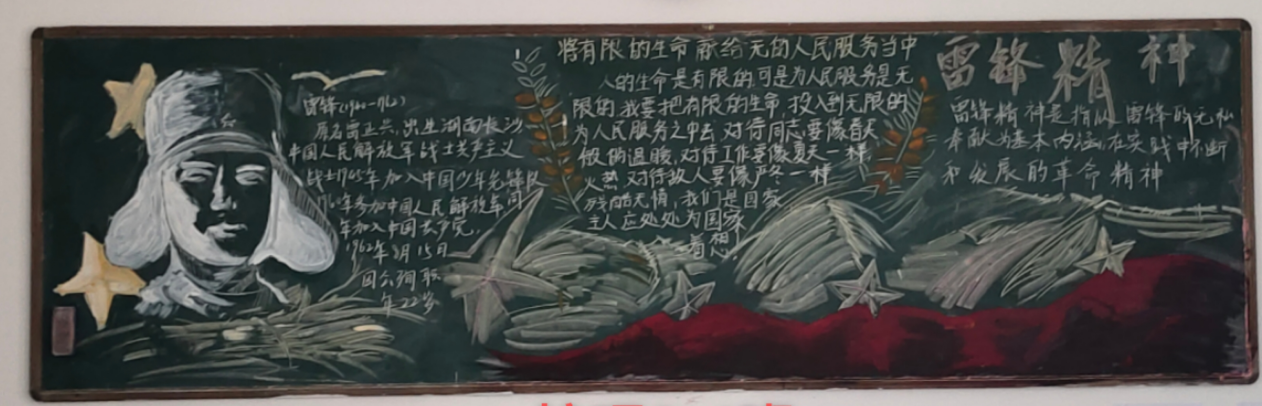 雷锋(1940-1962)
原名雷正兴,出生湖南长沙
中国人民解放军战士共产主义
战士1945年加入中国少年先锋队
1960年参加中国人民解放军同
年加入中国共产党,
1962年8月15日
因公殉职
年22岁
将有限的生命献给无的人民服务当中
人的生命是有限的可是为人民服务是无
限的,我要把有限的生命,投入到无限的
为人民服务之中去,对待同志要像春天
般的温暖,对待工作要像夏天一样
火热,对待敌人要像严冬一样
残酷无情,我们是国家
主人应处处为国家
着想。
雷锋精神
雷锋精神是指以雷锋的无私
奉献为基本内涵,在实践中不断
和发展的革命精神